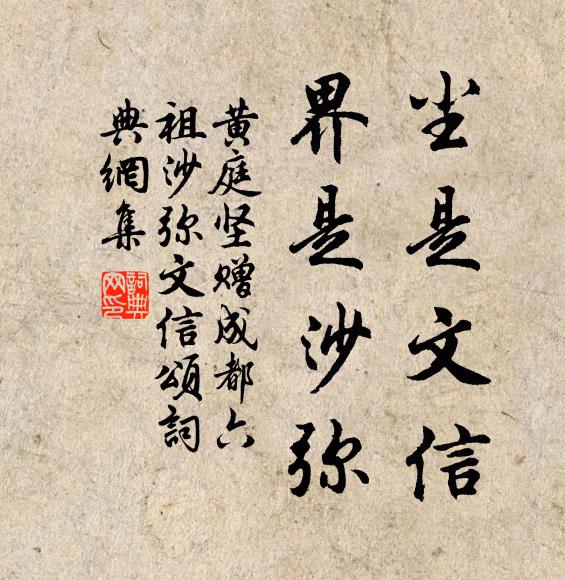 尘是文信
界是沙弥
黄庭坚赠成都六
祖沙弥文信颂詞
典網集
詞典
网印